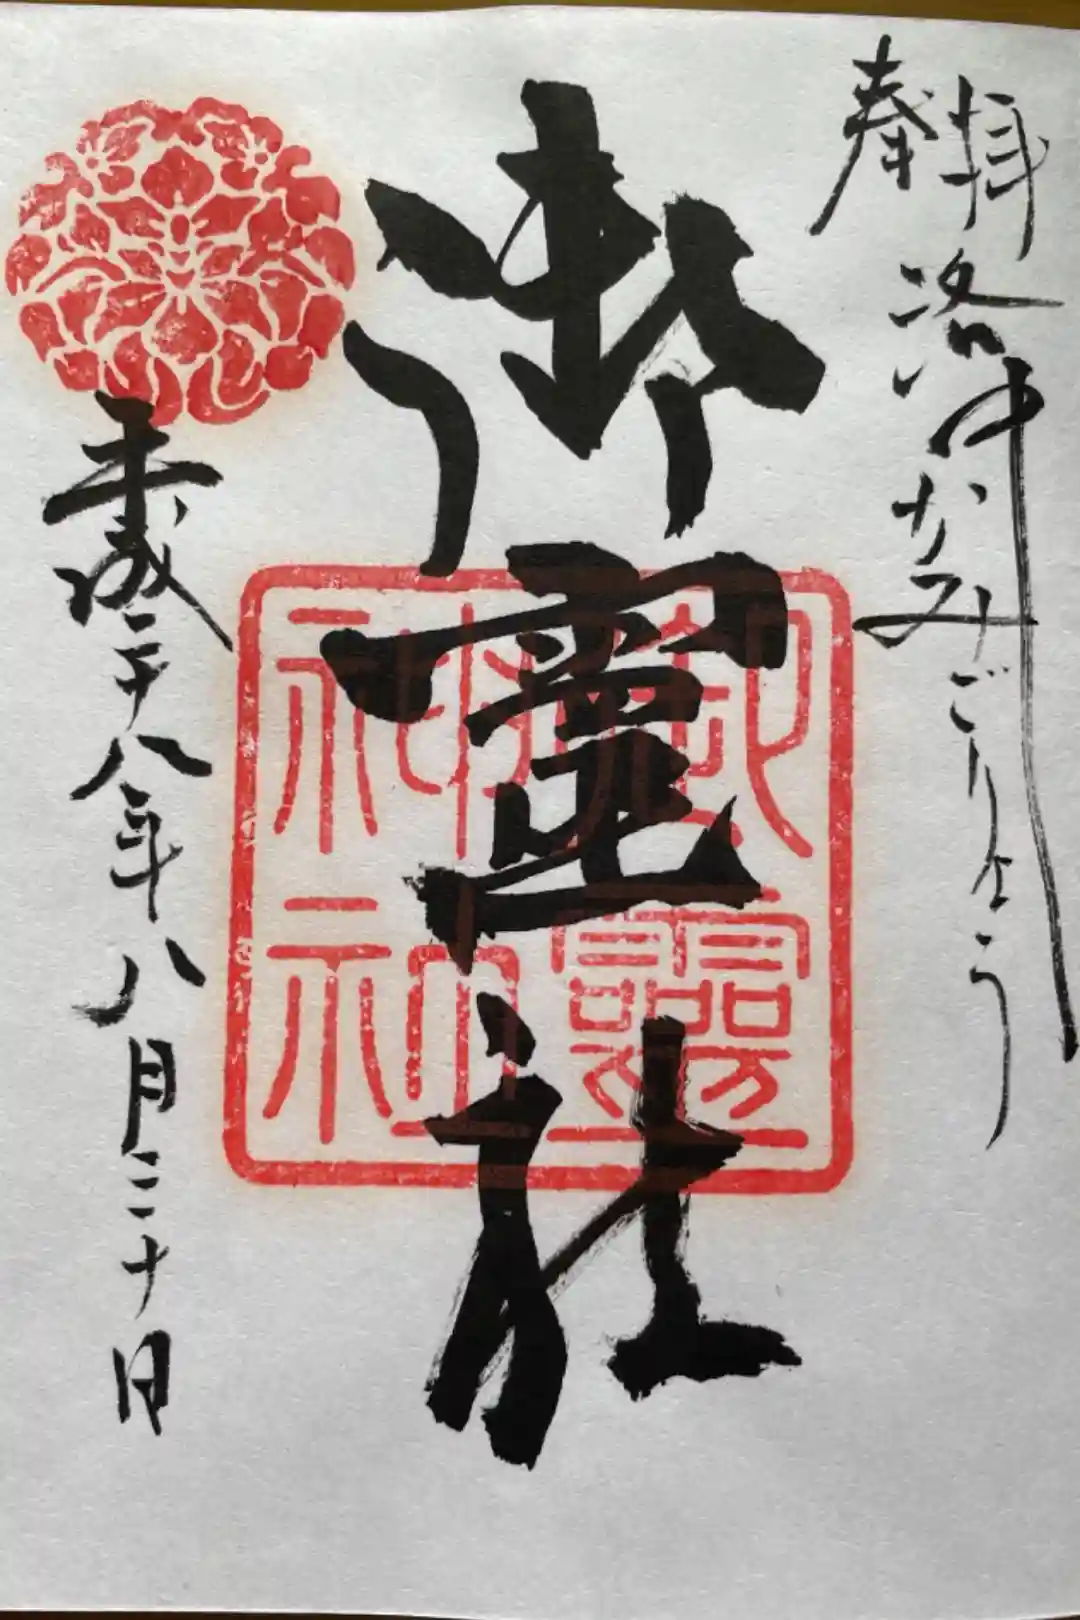 奉拝
洛中かみごりょう
御霊社
平成二十八年八月二十日
御靈
神社